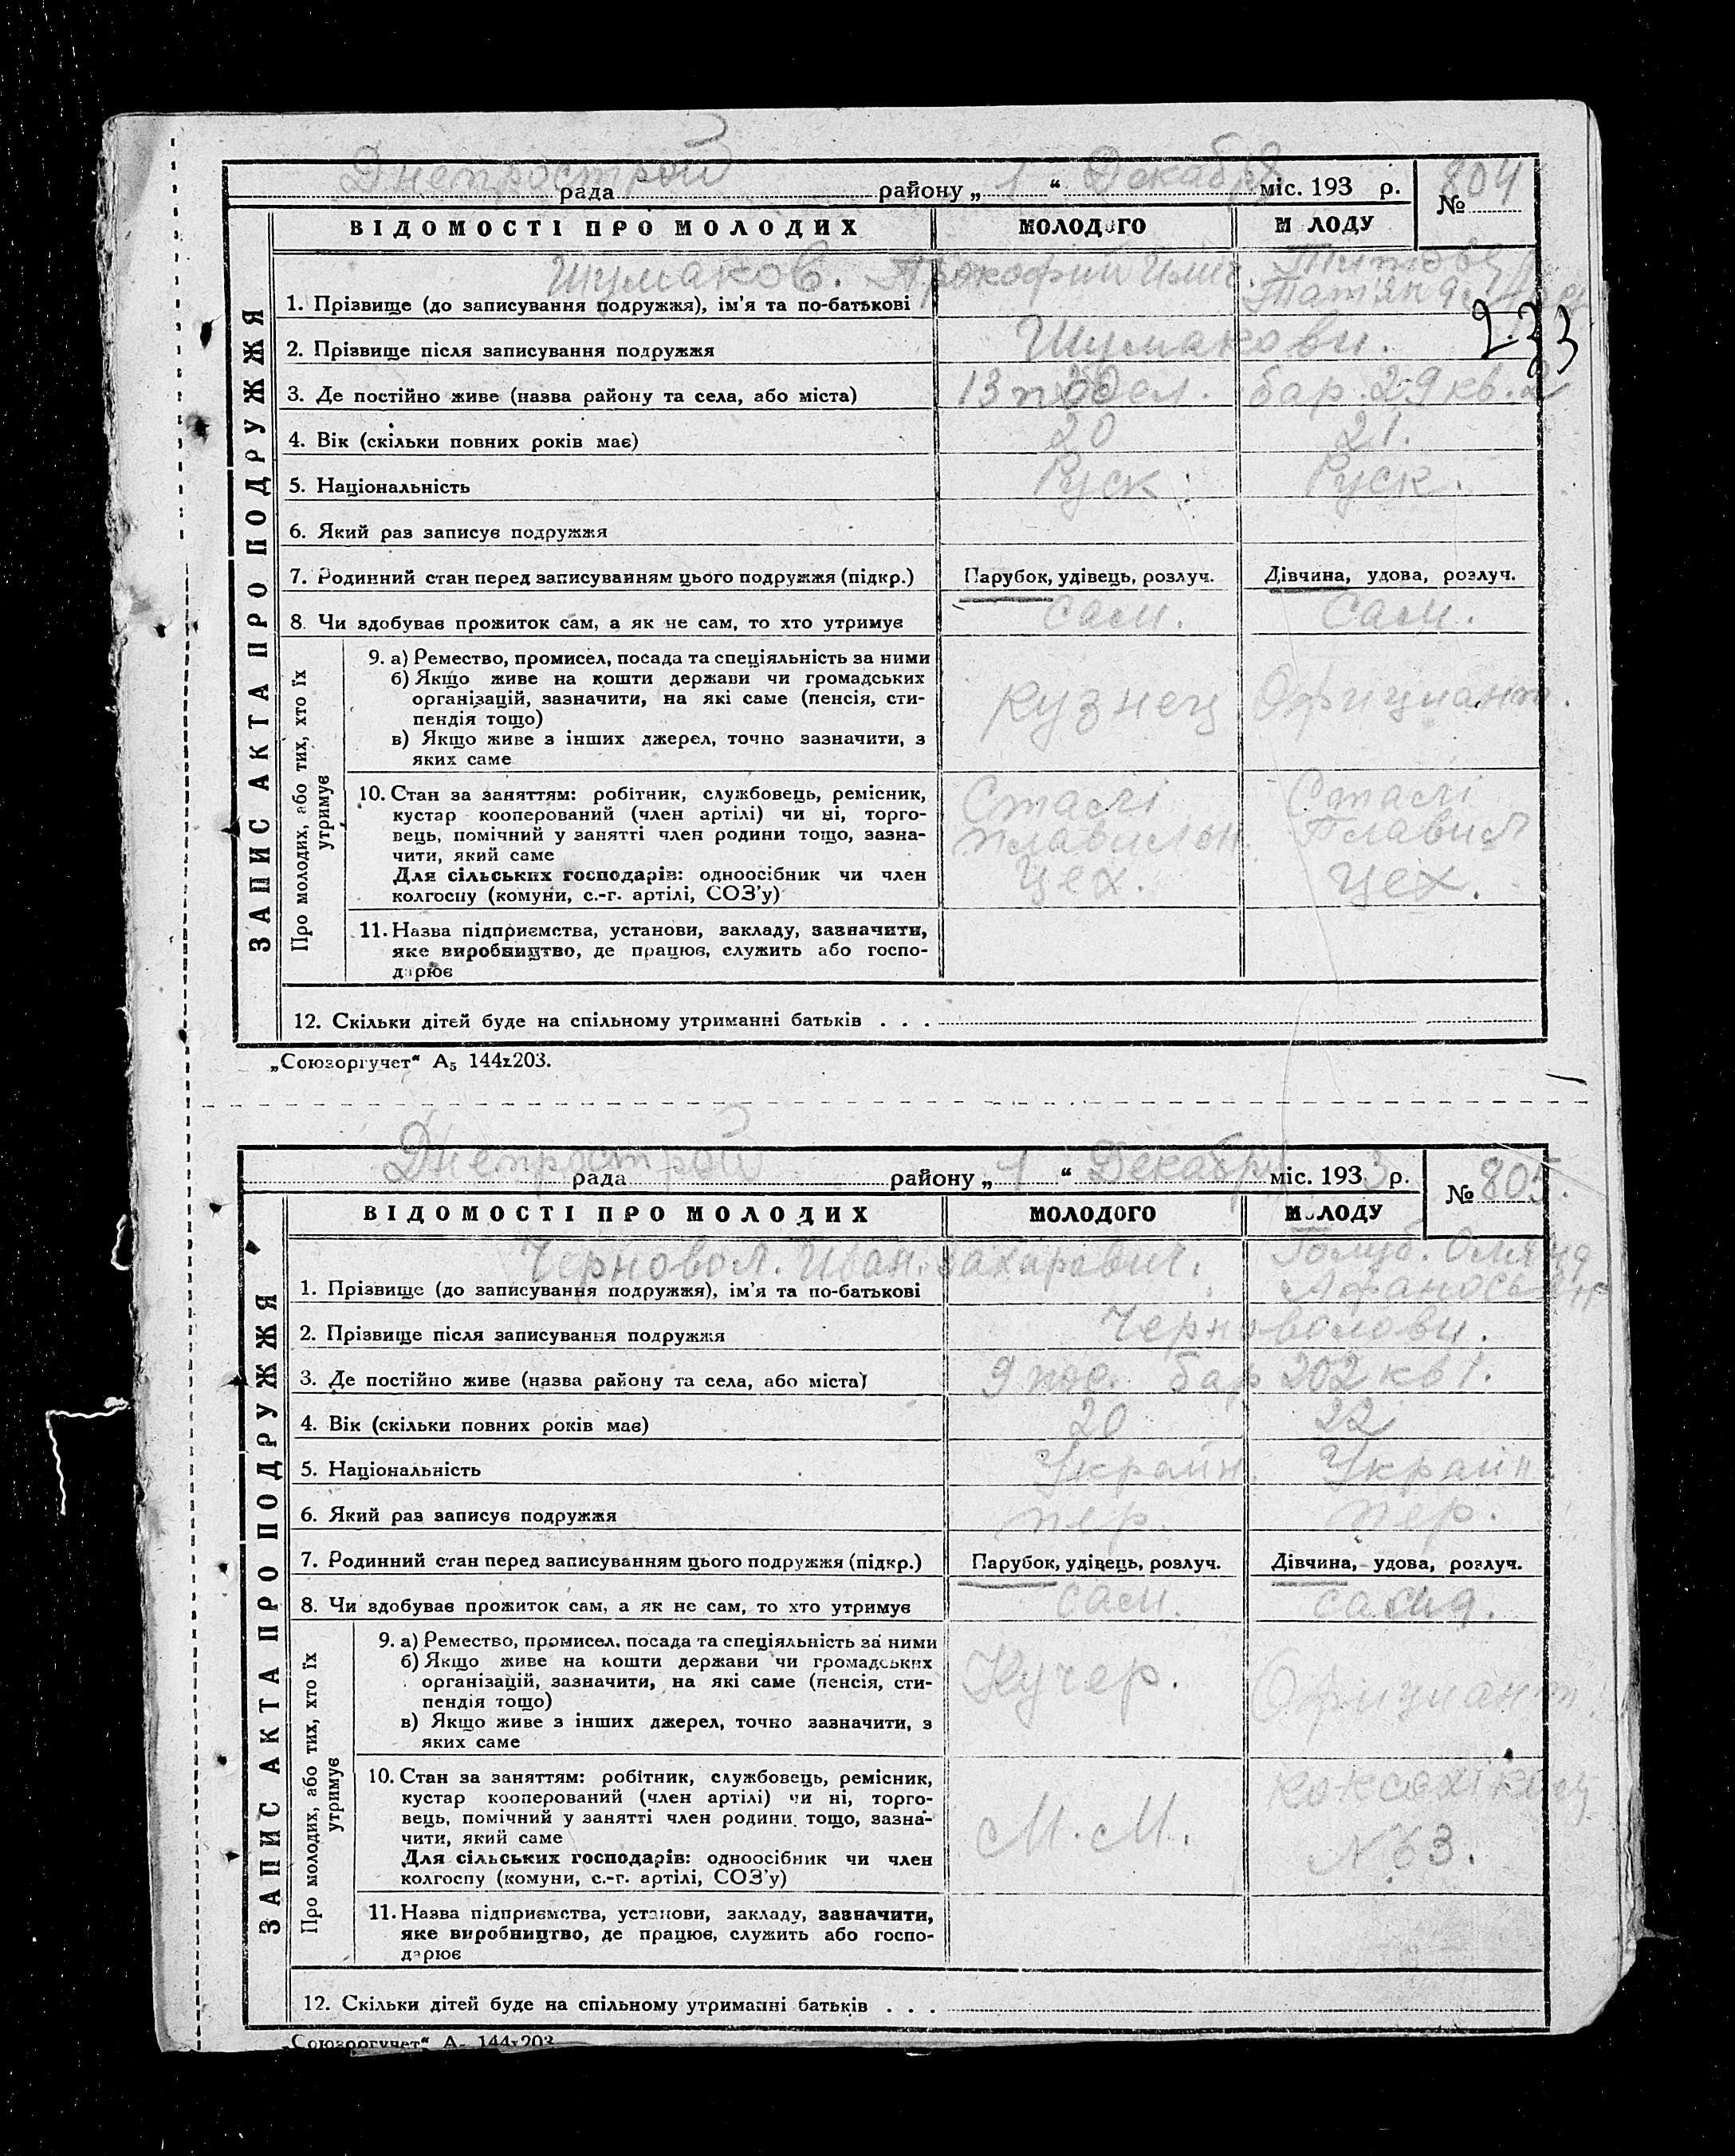 Днепрострой рада району „ 1 “ Декабря міс. 193 р. № 804
ВІДОМОСТІ ПРО МОЛОДИХ МОЛОДОГО М ЛОДУ
ЗАПИС АКТА ПРО ПОДРУЖЖЯ
Шумаков. Прокофий Титова
1. Прізвище (до записування подружжя), ім’я та по-батькові Татьяна
233
2. Прізвище після записування подружжя Шумакови.
3. Де постійно живе (назва району та села, або міста) 13 бар. 29 кв. 2
4. Вік (скільки повних років має) 20 21.
5. Національність Руск. Руск.
6. Який раз записує подружжя
7. Родинний стан перед записуванням цього подружжя (підкр.) Парубок, удівець, розлуч. Дівчина, удова, розлуч.
8. Чи здобуває прожиток сам, а як не сам, то хто утримує сам. сам.
Про молодих, або тих, хто їх утримує
9. а) Ремество, промисел, посада та спеціяльність за ними
б) Якщо живе на кошти держави чи громадських
організацій, зазначити, на які саме (пенсія, сти-
пендія тощо) кузнец Официант.
в) Якщо живе з інших джерел, точно зазначити, з
яких саме
10. Стан за заняттям: робітник, службовець, ремісник, Сталі Сталі
кустар кооперований (член артілі) чи ні, торго-
вець, помічний у занятті член родини тощо, зазна- плавильн. Плавил
чити, який саме
Для сільських господарів: одноосібник чи член цех. цех.
колгоспу (комуни, с.-г. артілі, СОЗ’у)
11. Назва підприємства, установи, закладу, зазначити,
яке виробництво, де працює, служить або госпо-
дарює
12. Скільки дітей буде на спільному утриманні батьків . . .
„Союзоргучет“ А5 144х203.
Днепрострой рада району „ 1 “ Декабря міс. 193 3 р. № 805.
ВІДОМОСТІ ПРО МОЛОДИХ МОЛОДОГО МОЛОДУ
ЗАПИС АКТА ПРО ПОДРУЖЖЯ
Черновол. Иван. Захарович. Голуб.
1. Прізвище (до записування подружжя), ім’я та по-батькові
2. Прізвище після записування подружжя Черноволови.
3. Де постійно живе (назва району та села, або міста) 9 пос. бар 202 кв 1.
4. Вік (скільки повних років має) 20 22
5. Національність Україн. Україн.
6. Який раз записує подружжя пер. пер.
7. Родинний стан перед записуванням цього подружжя (підкр.) Парубок, удівець, розлуч. Дівчина, удова, розлуч.
8. Чи здобуває прожиток сам, а як не сам, то хто утримує сам. сама.
Про молодих, або тих, хто їх утримує
9. а) Ремество, промисел, посада та спеціяльність за ними
б) Якщо живе на кошти держави чи громадських
організацій, зазначити, на які саме (пенсія, сти- Кучер. Официант.
пендія тощо)
в) Якщо живе з інших джерел, точно зазначити, з
яких саме
10. Стан за заняттям: робітник, службовець, ремісник,
кустар кооперований (член артілі) чи ні, торго-
вець, помічний у занятті член родини тощо, зазна- М. М.
чити, який саме
Для сільських господарів: одноосібник чи член
колгоспу (комуни, с.-г. артілі, СОЗ’у)
11. Назва підприємства, установи, закладу, зазначити,
яке виробництво, де працює, служить або госпо-
дарює
12. Скільки дітей буде на спільному утриманні батьків . . .
„Союзоргучет“ А5 144х203